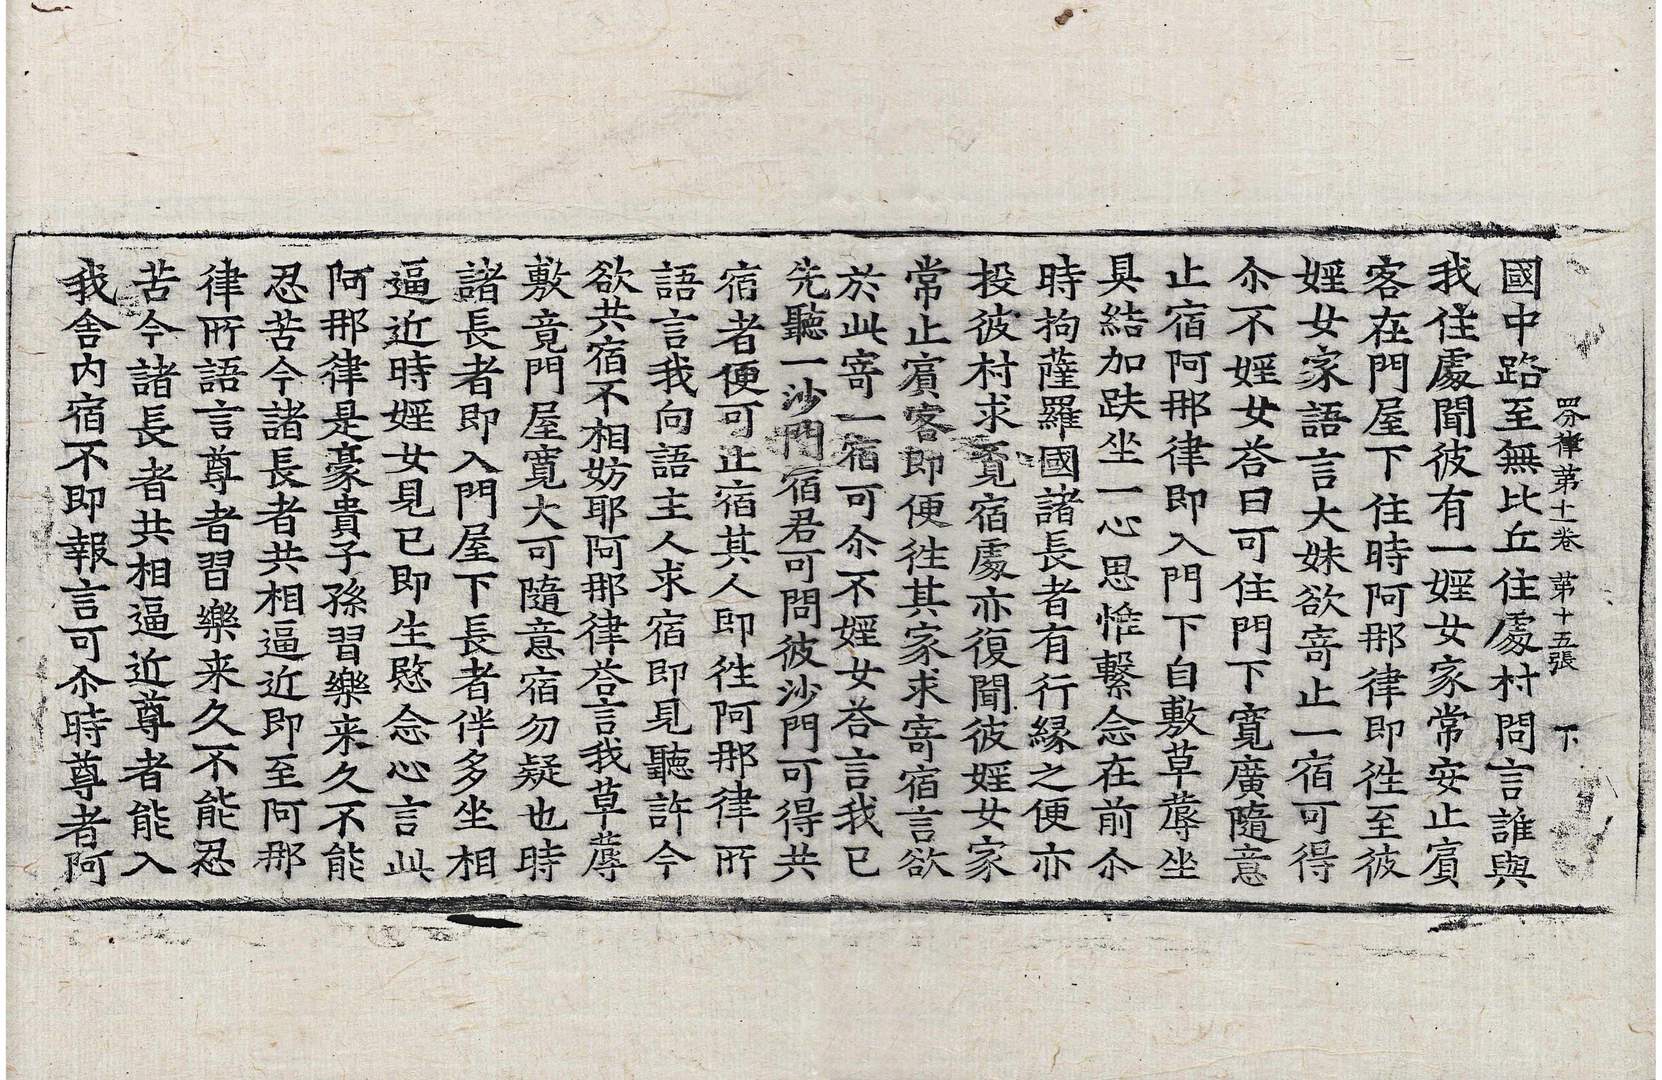 四分律第十一卷 第十五張 下
國中路至無比丘住處村問言誰與
我住處聞彼有一婬女家常安止賓
客在門屋下住時阿那律即徃至彼
婬女家語言大妹欲寄止一宿可得
尒不婬女荅曰可住門下寬廣隨意
止宿阿那律即入門下自敷草蓐坐
具結加趺坐一心思惟繫念在前尒
時拘薩羅國諸長者有行縁之便亦
投彼村求覓宿處亦復聞彼婬女家
常止賓客即便徃其家求寄宿言欲
於此寄一宿可尒不婬女荅言我已
先聽一沙門宿君可問彼沙門可得共
宿者便可止宿其人即徃阿那律所
語言我向語主人求宿即見聽許今
欲共宿不相妨耶阿那律荅言我草蓐
敷竟門屋寬大可隨意宿勿疑也時
諸長者即入門屋下長者伴多坐相
逼近時婬女見已即生愍念心言此
阿那律是豪貴子孫習樂来久不能
忍苦今諸長者共相逼近即至阿那
律所語言尊者習樂来久不能忍
苦今諸長者共相逼近尊者能入
我舍内宿不即報言可尒時尊者阿